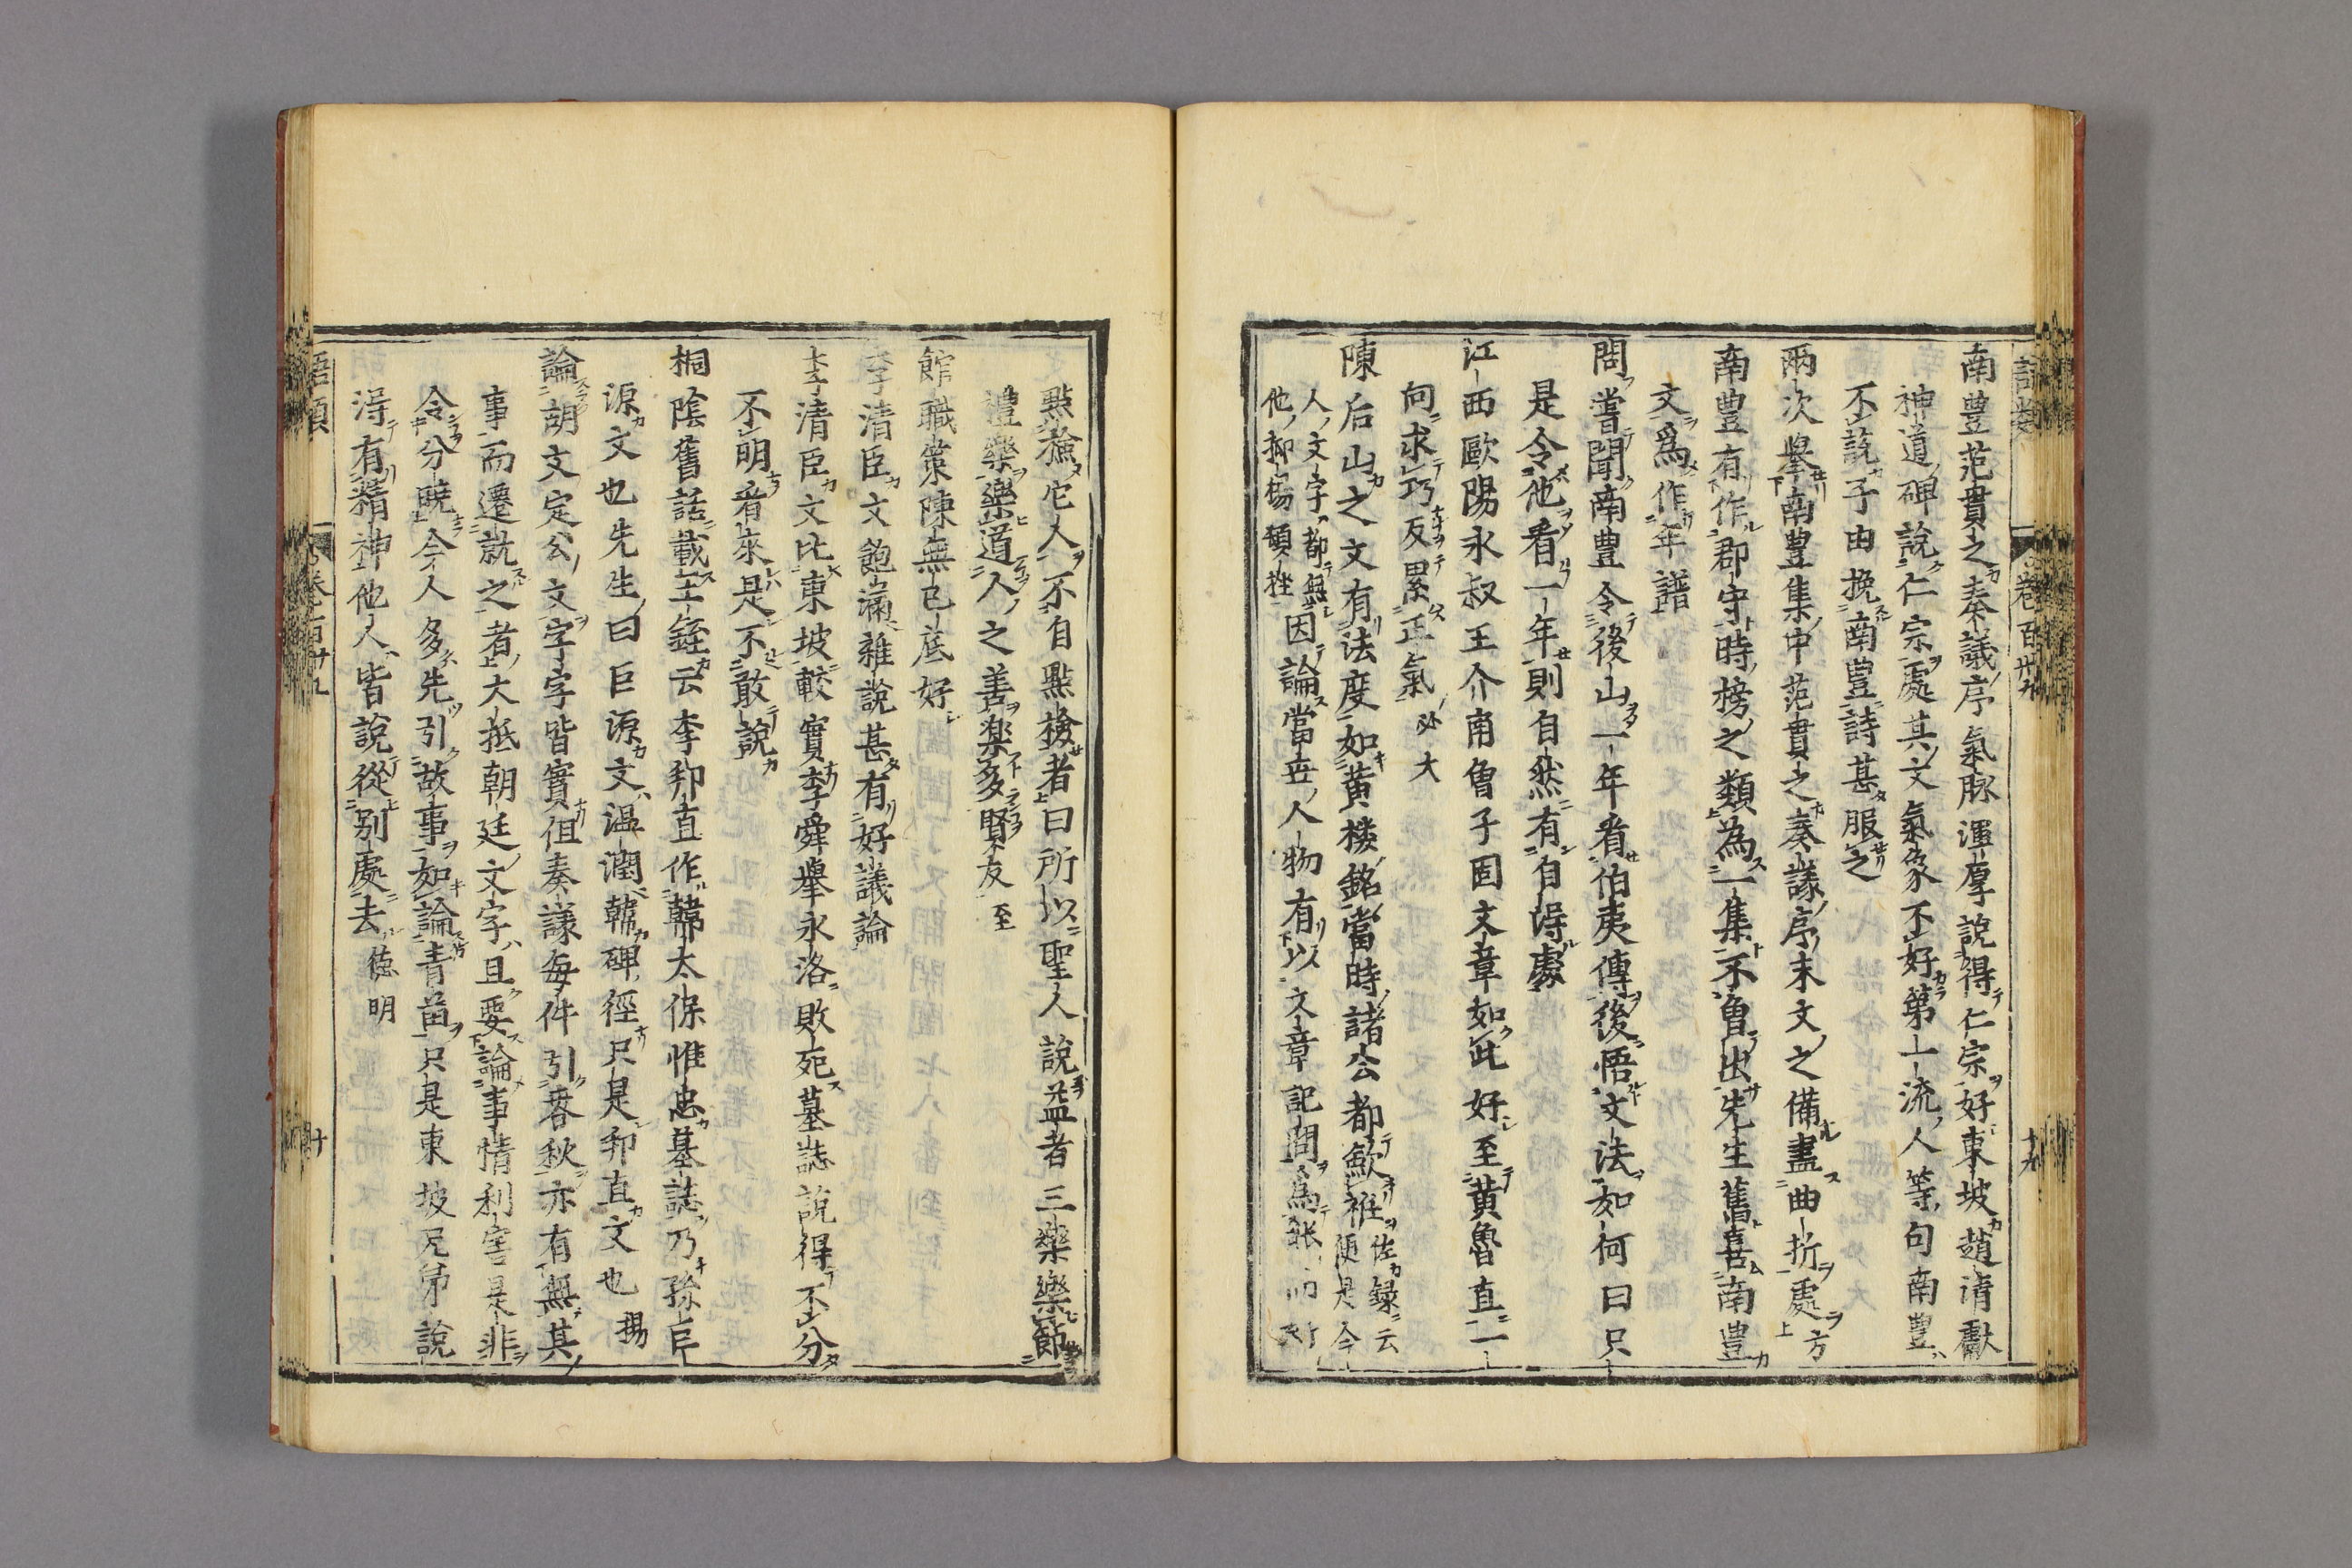 語類 卷百卅九 十九
南豊范貫之奏議序氣脉渾厚說得仁宗好東坡趙清獻
神道碑說仁宗處其文氣象不好第一流人等句南豊
不說子由挽南豊詩甚服之
兩次擧南豊集中范貫之奏議序末文之備盡曲折處方
南豊有作郡守時榜之類為一集不曽出先生舊喜南豊
文爲作年譜
問嘗聞南豊令後山一年看伯夷傳後悟文法如何曰只
是令他看一年則自然有自得處
江西歐陽永叔王介甫曽子固文章如此好至黃魯直一
向求巧反累正氣 必大
陳后山之文有法度如黃樓銘當時諸公都歛袵 佐録云便是今
人文字都無他抑揚頓挫 因論當世人物有以文章記問爲能而
點檢它人不自點檢者曰所以聖人說益者三樂樂節
禮樂樂道人之善樂多賢友 至
館職策陳無已底好
李清臣文飽滿雜說甚有好議論
李清臣文比東坡較實李舜擧永洛敗死墓誌說得不分
不明看來是不敢說
桐陰舊話載王銍云李邦直作韓太保惟忠墓誌乃孫巨
源文也先生曰巨源文温潤韓碑徑只是邦直文也 揚
論胡文定公文字字皆實但奏議每件引春秋亦有無其
事而遷就之者大抵朝廷文字且要論事情利害是非
令分曉今人多先引故事如論青苗只是東坡兄弟說
得有精神他人皆說從別處去 徳明
語類 卷百卅九 廿